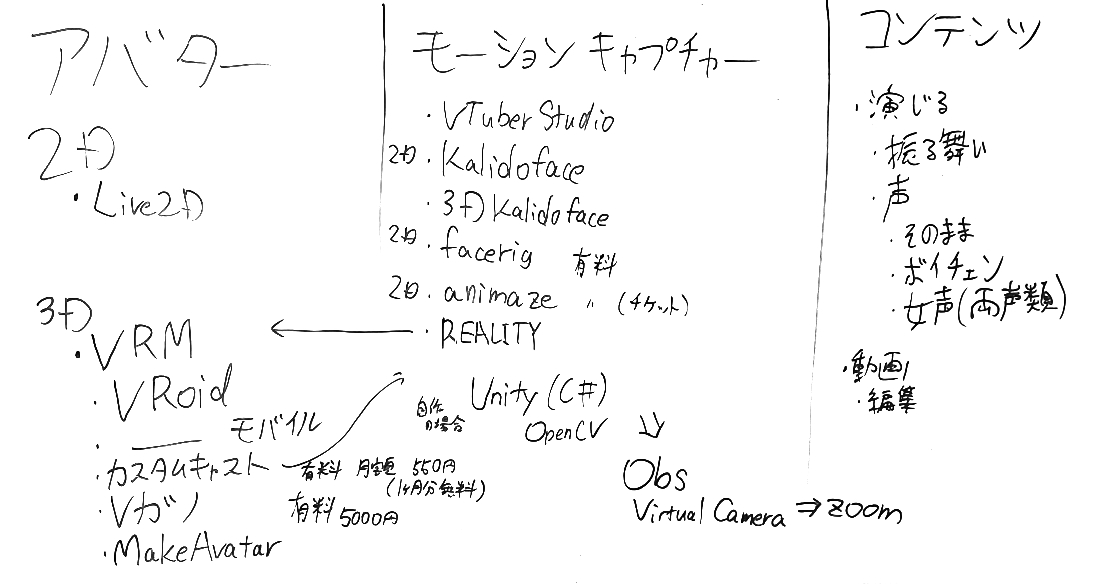 アバター
2D
・Live2D
3D
・VRM
・VRoid
・―― モバイル
・カスタムキャスト 有料 月額 550円
(1ヶ月分無料)
・Vカツ 有料 5000円
・MakeAvatar
モーションキャプチャー
・VTuber Studio
2D・Kalidoface
・3D Kalidoface
2D・facerig 有料
2D・animaze 〃 (チケット)
・REALITY
自作の場合 Unity (C#)
OpenCV
Obs
Virtual Camera ⇒ zoom
コンテンツ
・演じる
・振る舞い
・声
・そのまま
・ボイチェン
・女声(両声類)
・動画
・編集